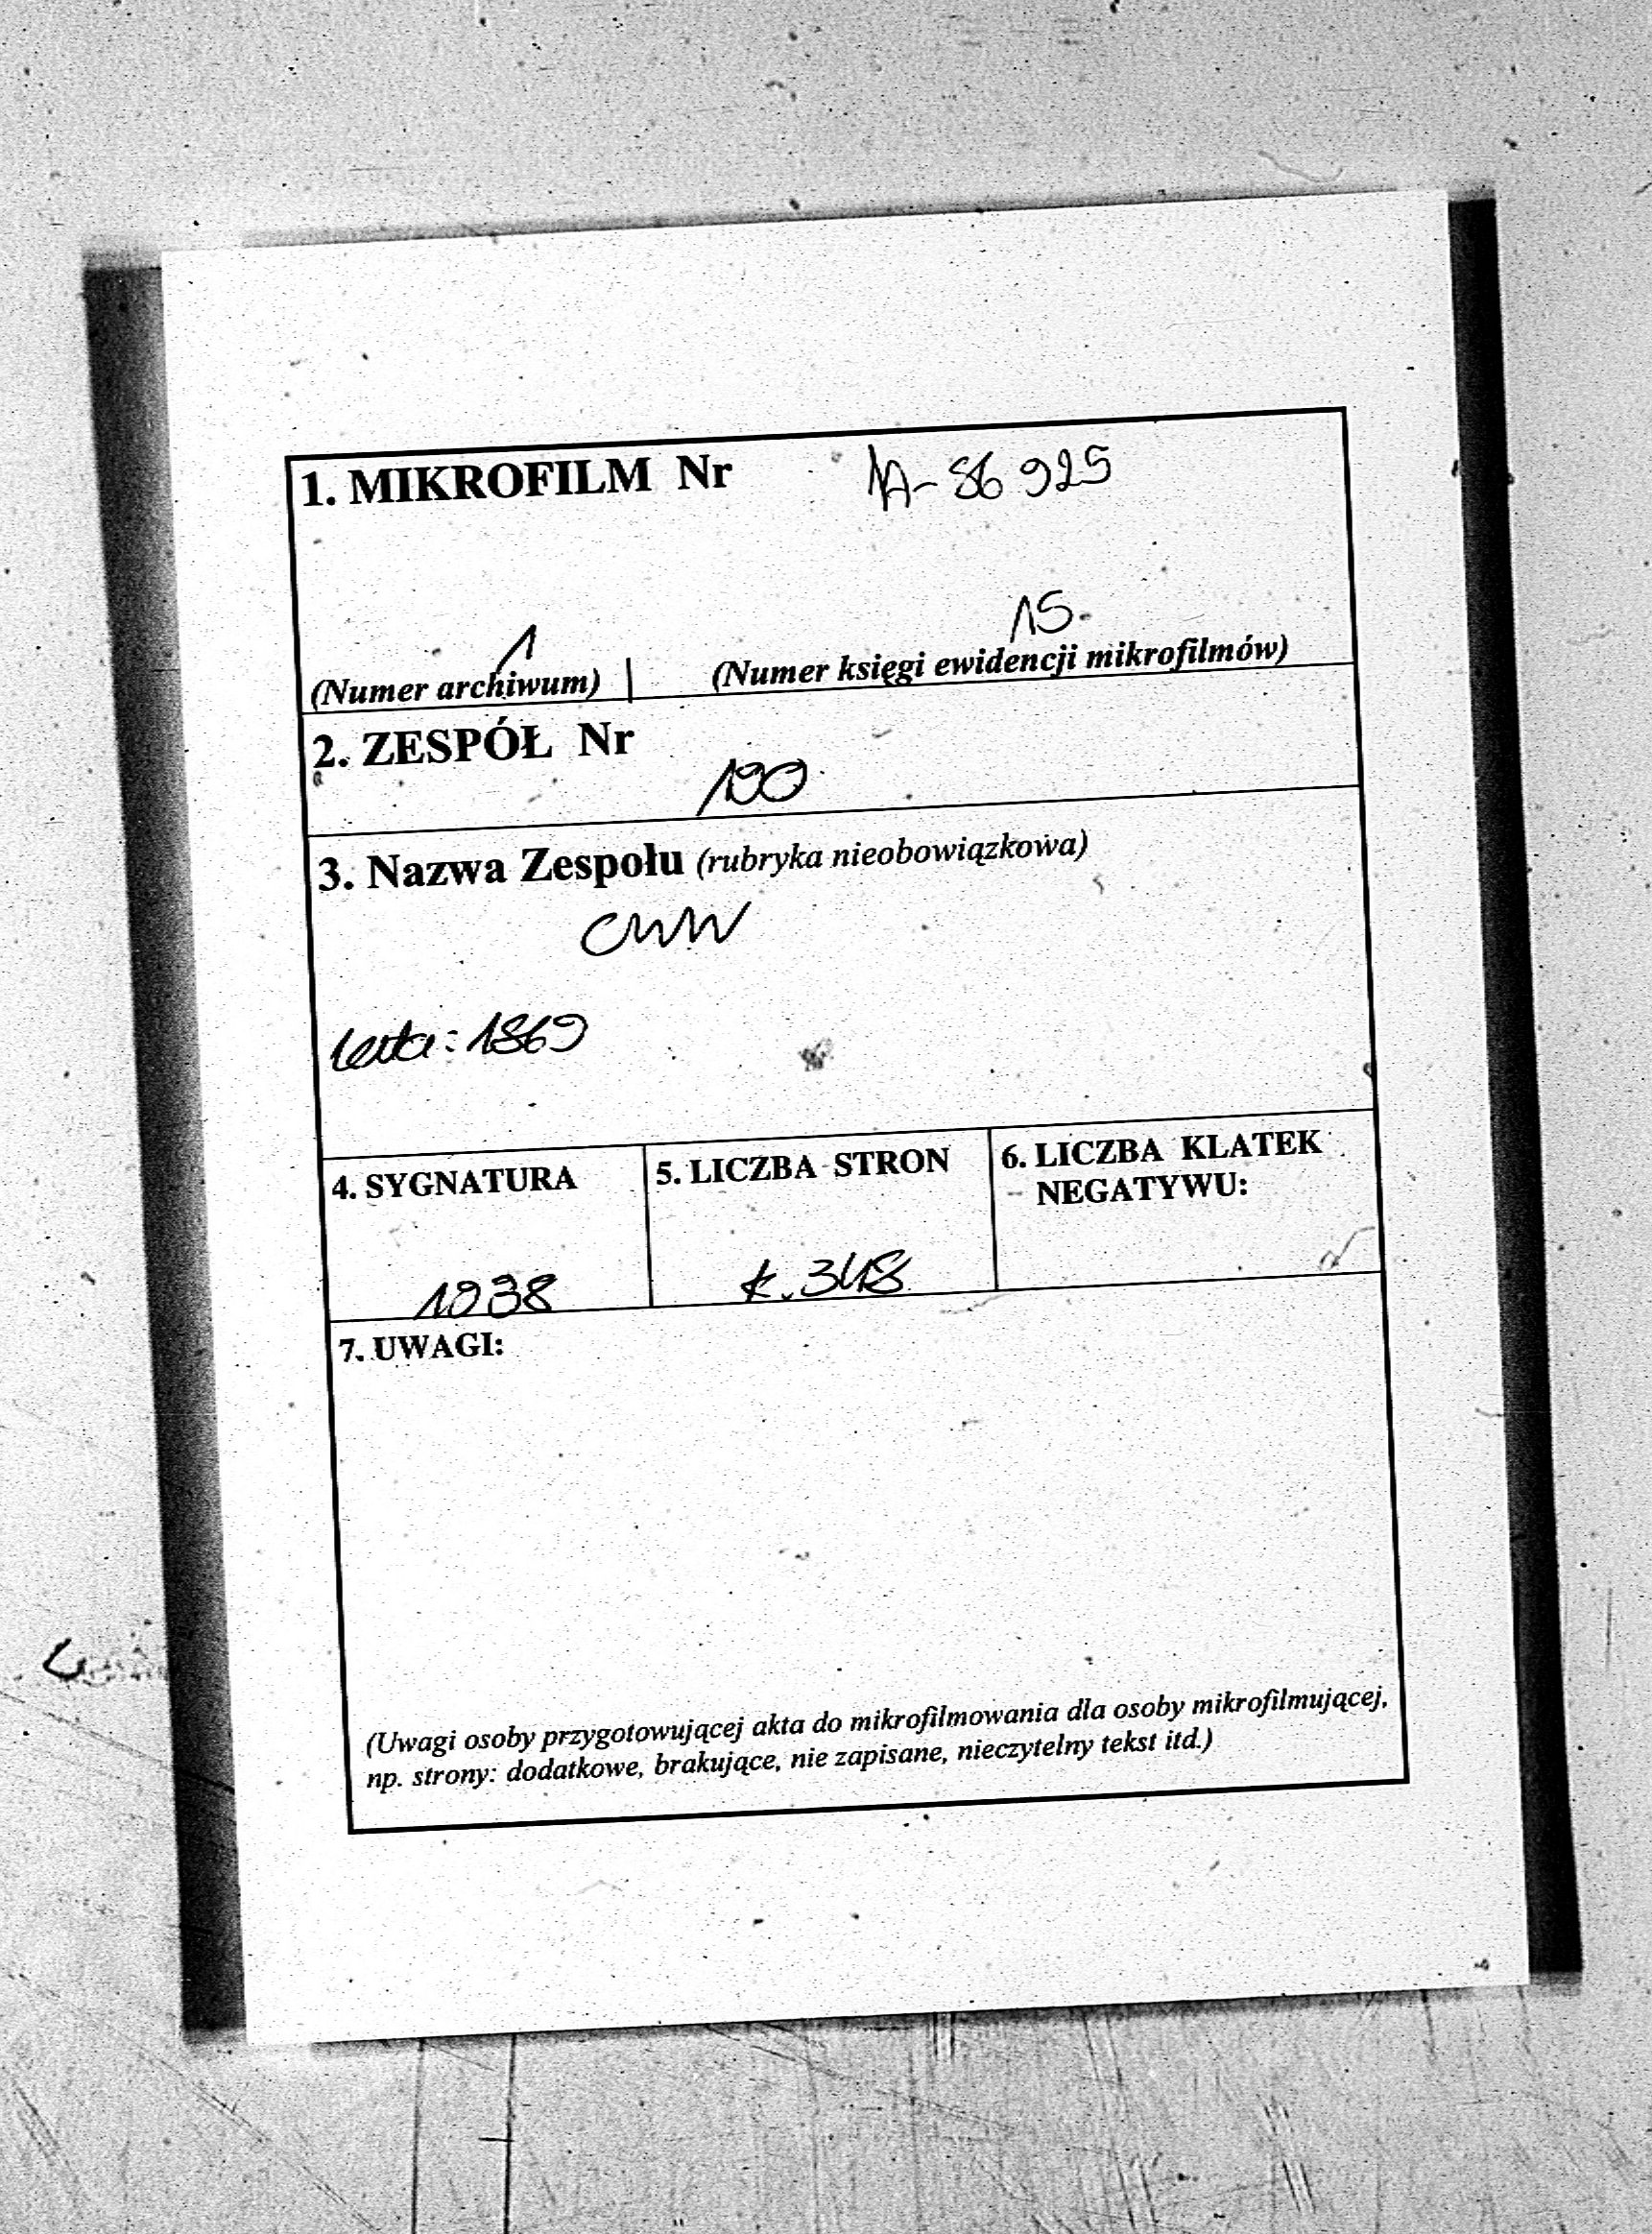 1. MIKROFILM Nr A-86 925
1 15
(Numer archiwum) | (Numer księgi ewidencji mikrofilmów)
2. ZESPÓŁ Nr
190
3. Nazwa Zespołu (rubryka nieobowiązkowa)
CWW
lata: 1869
4. SYGNATURA 5. LICZBA STRON 6. LICZBA KLATEK
NEGATYWU:
1038 k. 348
7. UWAGI:
(Uwagi osoby przygotowującej akta do mikrofilmowania dla osoby mikrofilmującej,
np. strony: dodatkowe, brakujące, nie zapisane, nieczytelny tekst itd.)